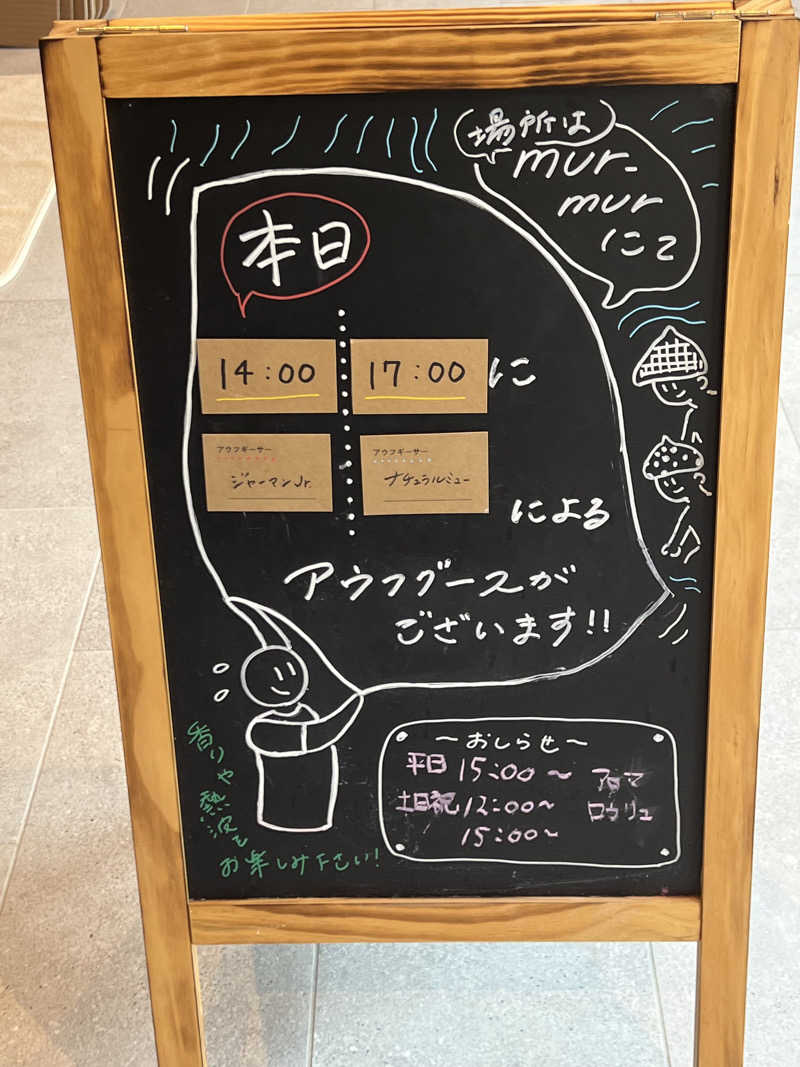 場所は
mur-
mur
にて
本日
14:00 17:00 に
アウフギーサー アウフギーサー
ジャーマンJr. ナチュラルミュー
による
アウフグースが
ございます!!
香りや熱波を
お楽しみ下さい!
~おしらせ~
平日 15:00~ アロマ
土日祝 12:00~ ロウリュ
15:00~